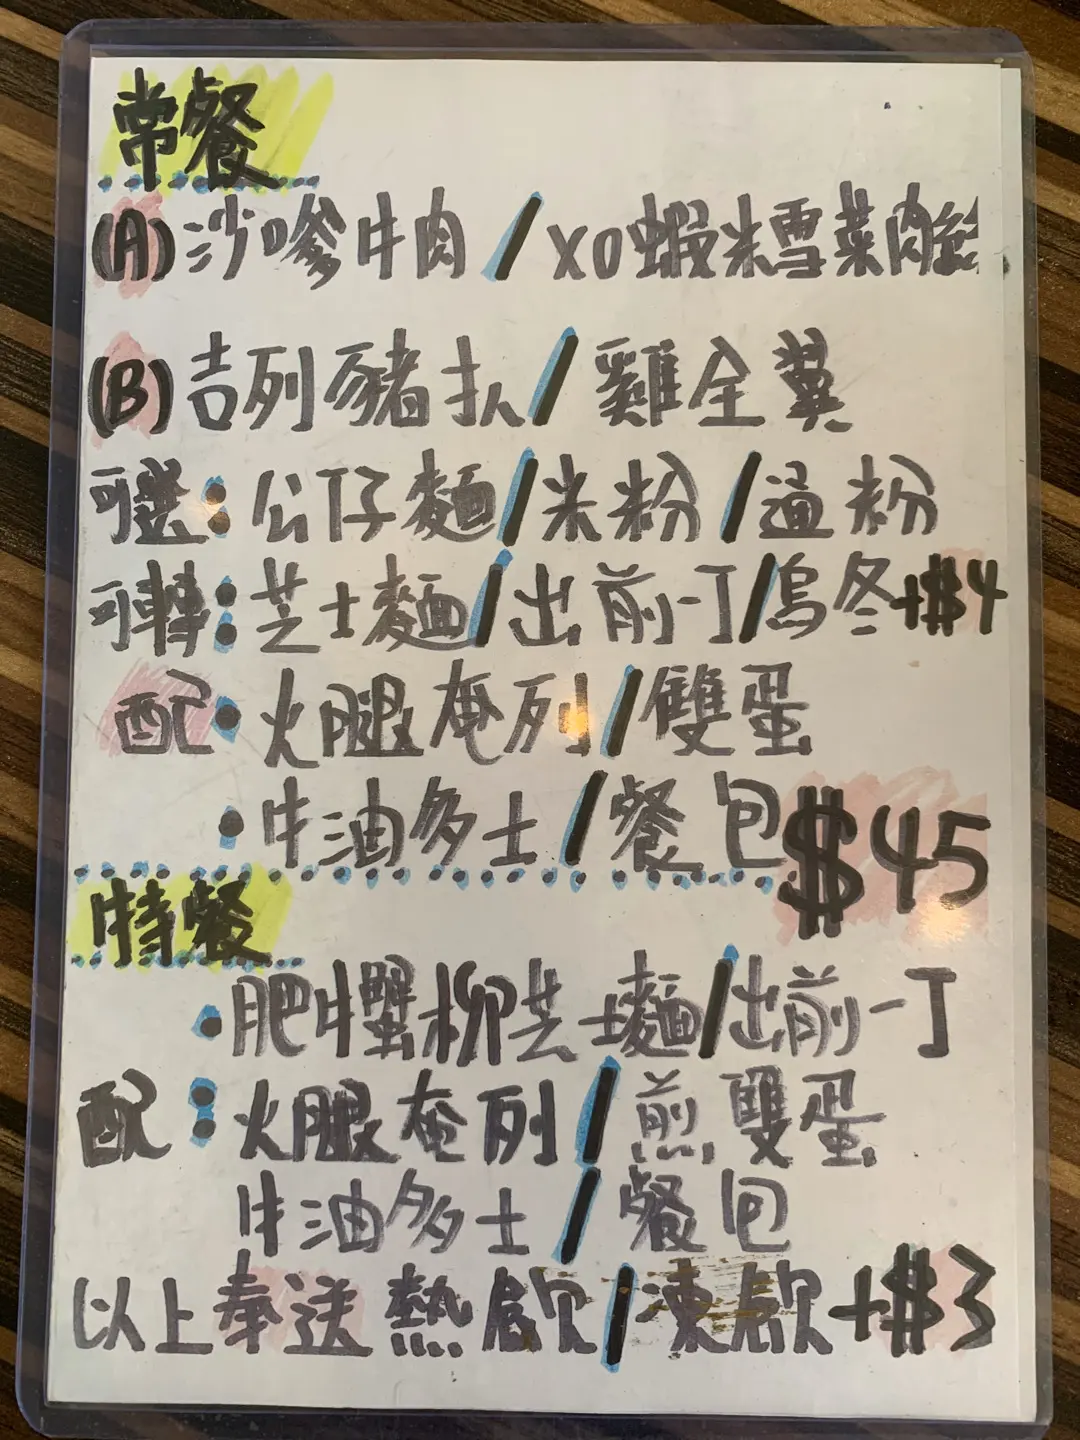 常餐
(A)沙嗲牛肉/XO蝦米雪菜肉絲
(B)吉列豬扒/雞全翼
可選:公仔麵/米粉/通粉
可轉:芝士麵/出前一丁/烏冬+$4
配:火腿奄列/雙蛋
•牛油多士/餐包 $45
特餐
•肥牛蟹柳芝士麵/出前一丁
配:火腿奄列/煎雙蛋
牛油多士/餐包
以上奉送熱飲/凍飲+$3